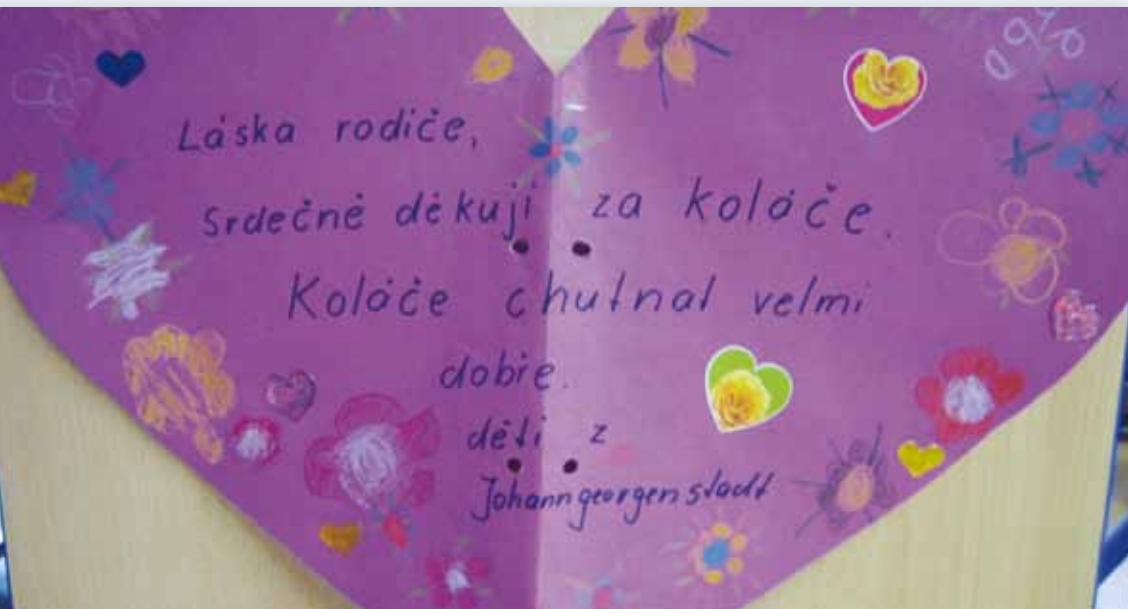 Láska rodiče,
Srdečně děkuji za koláče.
Koláče chutnal velmi
dobře.
děti z
Johanngeorgenstadt